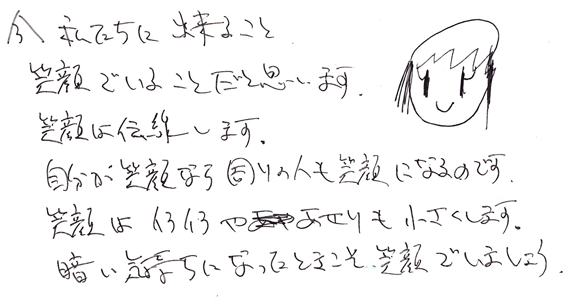 今 私たちに 出来ること
笑顔でいることだと思います.
笑顔は伝線します.
自分が笑顔なら周りの人も笑顔になるのです.
笑顔は イライラや あせりも 小さくします.
暗い気持ちになったときこそ、笑顔でいましょう.